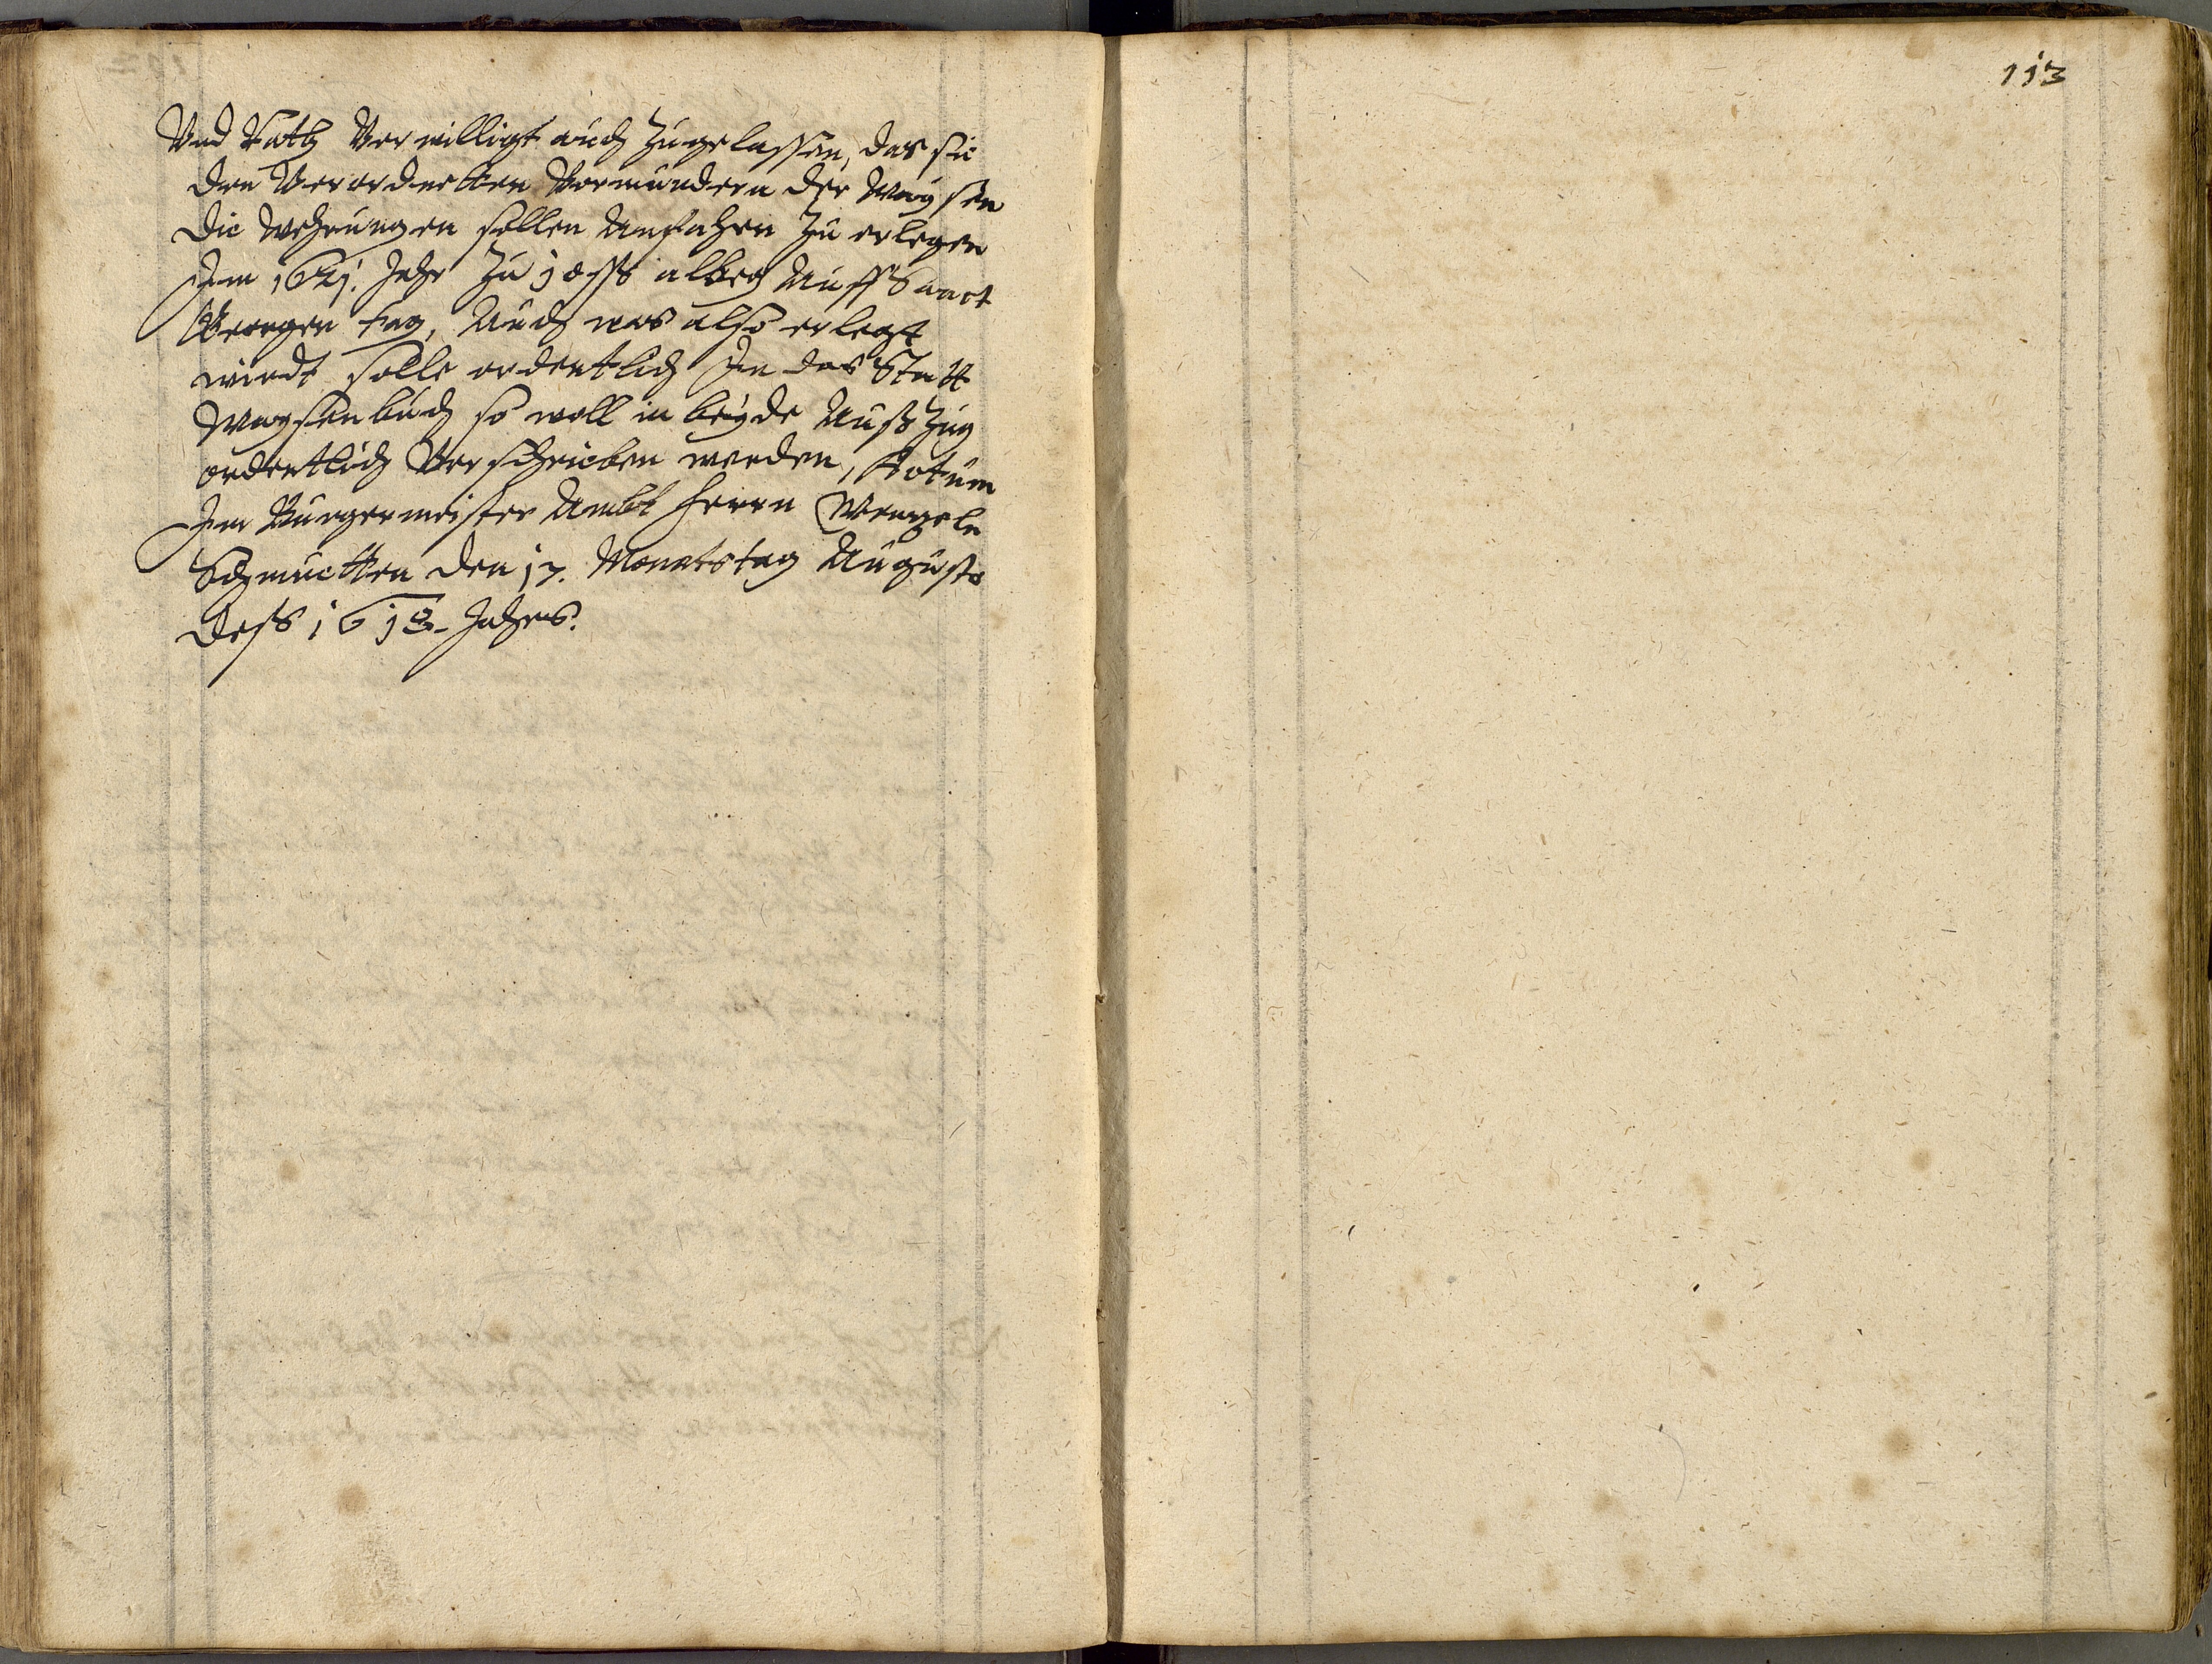 113
Vnd Rath Verwilligt auch Zugelassen, das sie
den Verordnetten Vormundern der Waysen
die Wehrungen sollen Anfahen Zu erlegen
Im 1621. Jahr Zu alweg Auff Sanct
Georgen tag, Auch was also erlegt
wirdt solle ordentlich In das Statt
Waysenbuch so woll in beyde Auß Zug
ordentlich Verschrieben werden, Actum
Im Burgermeister Ambt Herrn Wenzeln
Schmuckten den 17. Monatstag Augusto
dess 1618. Jahrs.